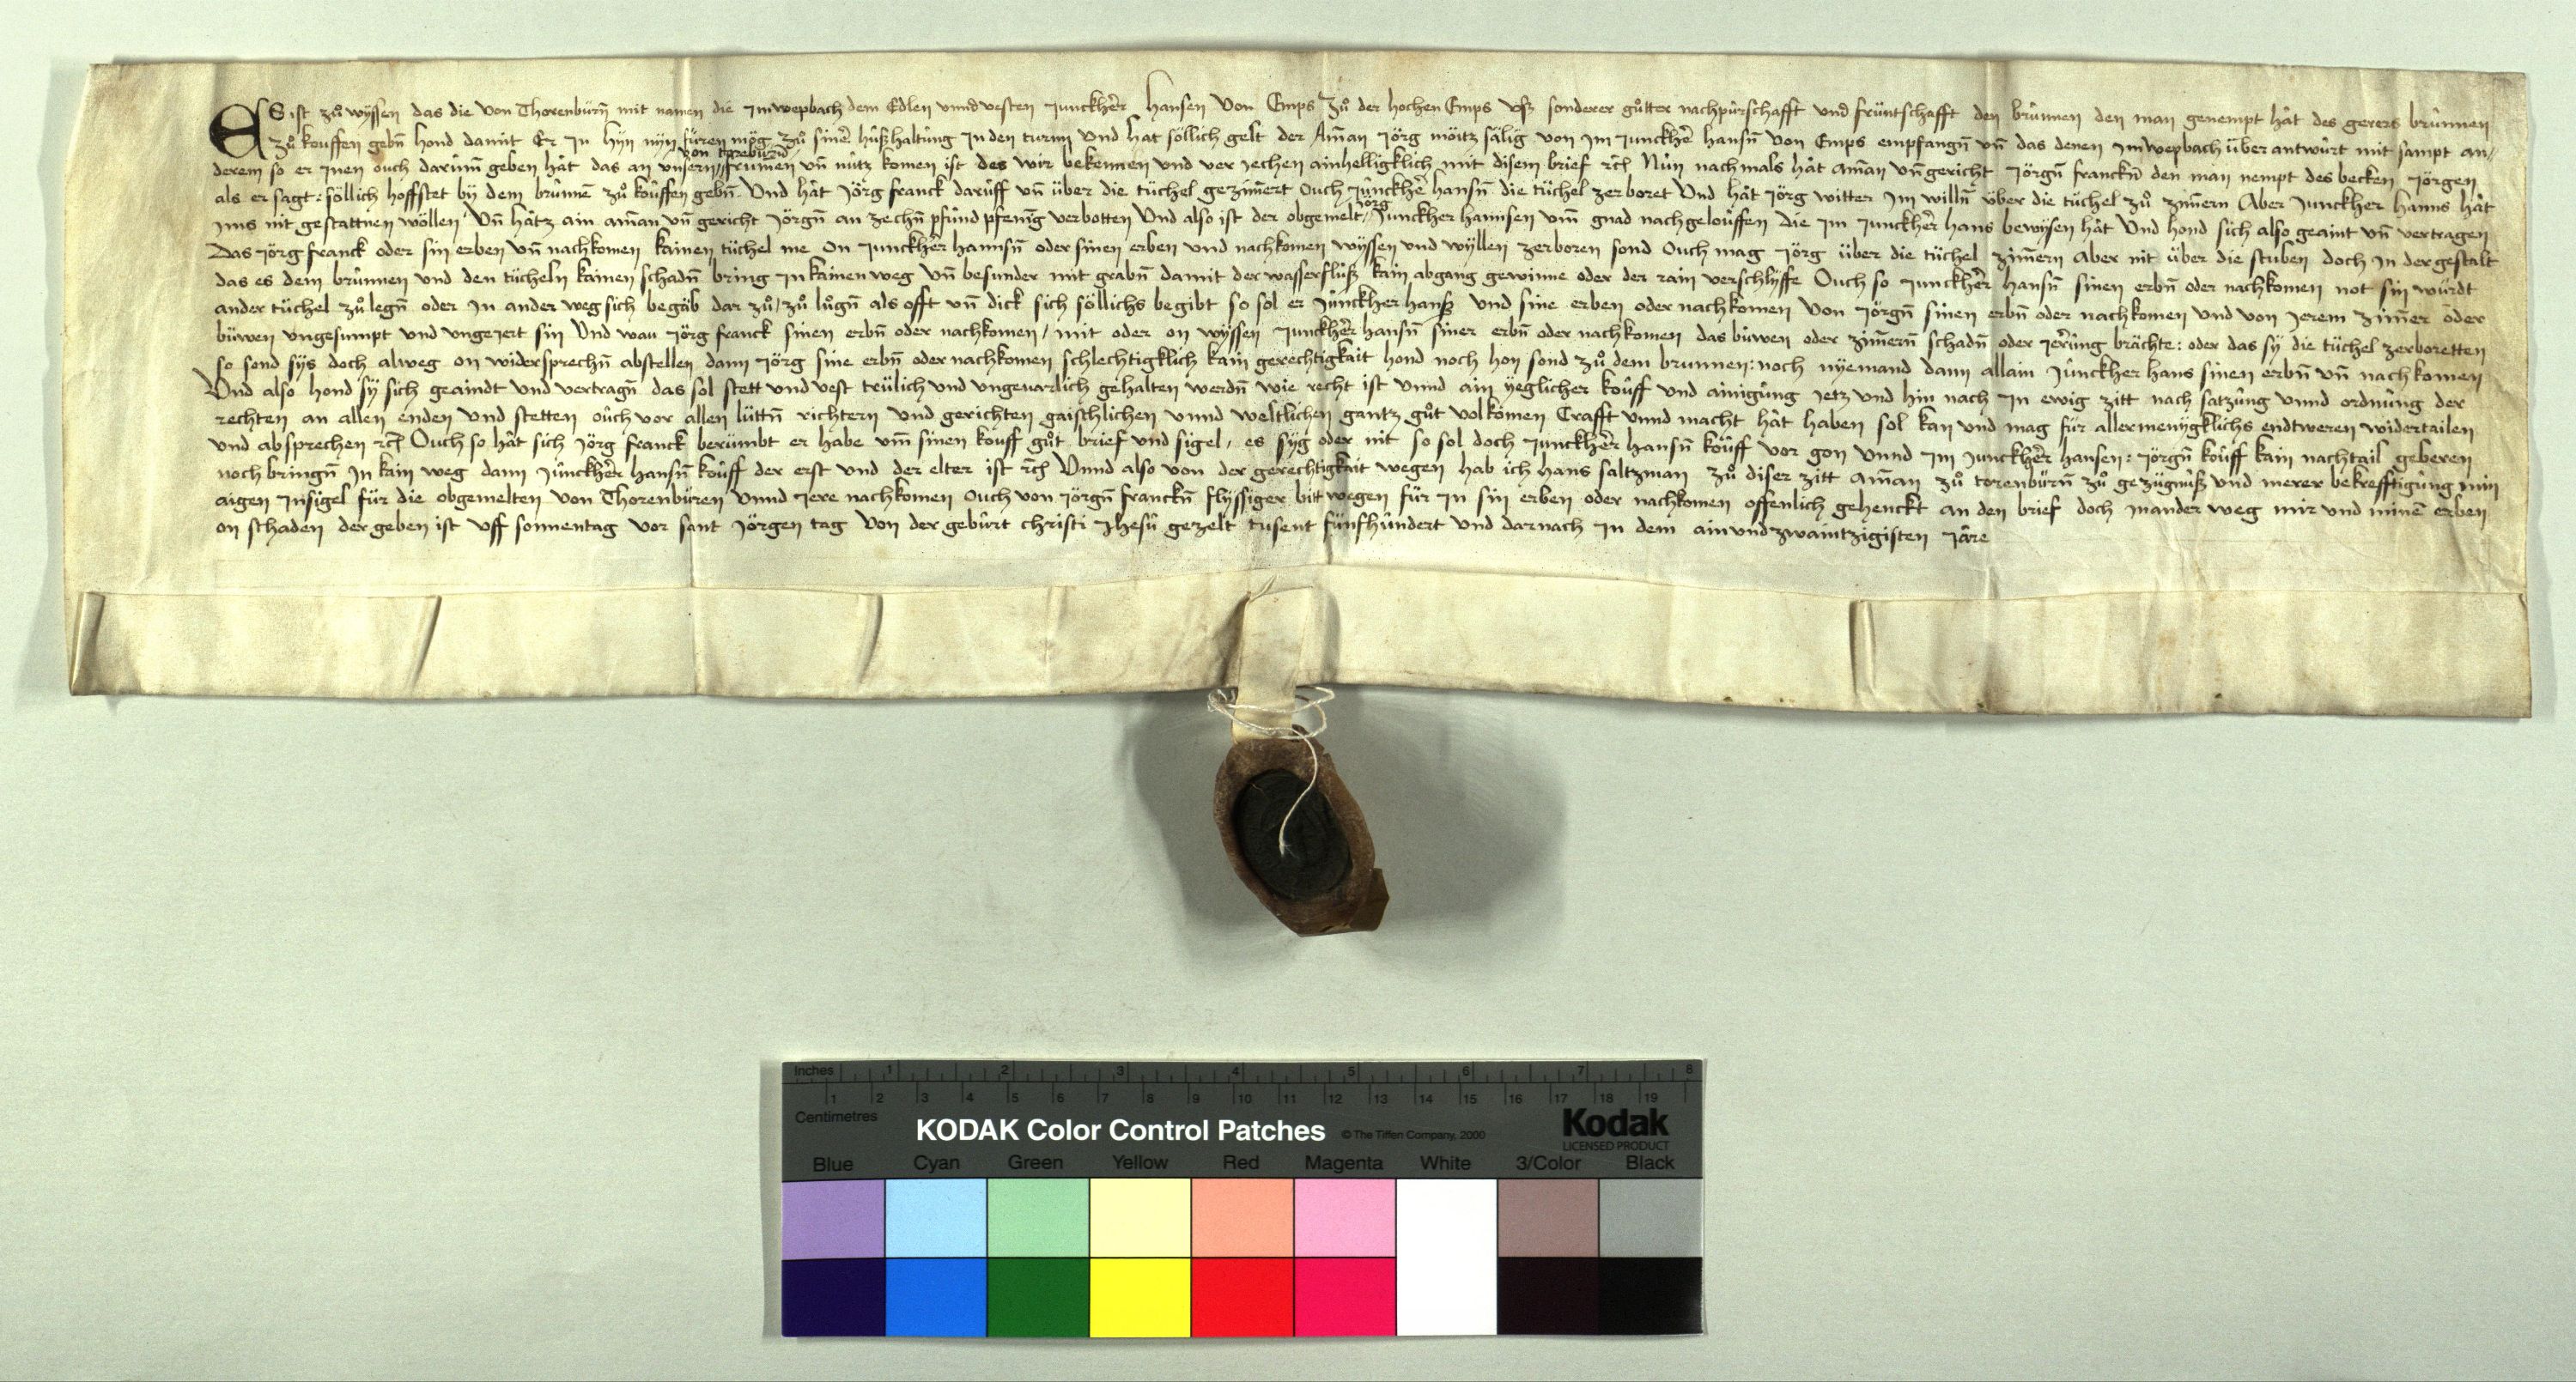 ES ist zuͦ wyssen das die von Thorenbürn̄ mit namen die Jmwepbach dem Edlen vnnd vesten Junckher̄ Hansen Von Emps Zuͦ der hochen Emps vsz sonderer guͦtter nachpürschafft vnd früntschafft den brünnen den man genempt hât des gerers brünnen
zuͦ kouffen gebn̄ hond damit Er Jn hyn nyn füren mög zuͦ sinē hußhaltung Jn den turm vnd hat söllich gelt der Am̄an Jörg mötz sälig von Jm Junckhē hansn̄ von Emps empfangn̄ vn̄ das denen Jmwepbach überantwürt mit sampt an/
derem so er Jnen ouch darum̄ geben hât das an vnsern von toreburn̄ frumen vn̄ nutz komen ist des wir bekennen vnd veriechen ainhelligklich mit disem brief rc̄ Nün nachmals hât aman̄ vn̄ gericht Jörgn̄ franckn̄ den man nempt des becken Jörgen
als er sagt: söllich hoffstet bÿ dem brunnē zuͦ kouffen gebn̄ Vnd hât Jörg franck daruff vn̄ über die tüchel gezim̄ert Ouch Junckhē hansn̄ die tüchel zerboret Vnd hât Jörg witter Jm willn̄ über die tüchel zuͦ zim̄ern Aber Junckher hanns hât
Jms nit gestattnen wöllen Vn̄ hâtz ain am̄an vn̄ gericht Jörgn̄ an zechn̄ pfund pfenig verbotten Vnd also ist der obgemelt Jörg Junckher hannsen vm̄ gnad nachgelouffen die Jm Junckher̄ hans bewysen hât Vnd hond sich also geaint vn̄ vertragen
Das Jörg franck oder sin erben vn̄ nachkomen kainen tüchel me on Junckher̄ hannsn̄ oder sinen erben vnd nachkomen wyssen vnd wyllen zerboren sond Ouch mag Jörg über die tüchel zim̄ern Aber nit über die stuben doch Jn der gestalt
das es dem brunnen vnd den tücheln kainen schadn̄ bring Jn kainen weg vn̄ besunder mit grabn̄ damit der wasserfluß kain abgang gewinne oder der rain verschlyffe Ouch so Junckher̄ Hansn̄ sinen erbn̄ oder nachkomen not sin würdt
ander tüchel zuͦ legn̄ oder Jn ander weg sich begäb dar zuͦ/ zuͦ luͦgn̄ als offt vn̄ dick sich söllichs begibt so sol er Junckher hanß vnd sine erben oder nachkomen Von Jörgn̄ sinen erbn̄ oder nachkomen vnd von Jerem zim̄er oder
büwen vngesumpt vnd vngeJert sin Vnd wau Jörg franck sinen erbn̄ oder nachkomen/ mit oder on wyssen Junckher̄ hansn̄ siner erbn̄ oder nachkomen das buwen oder zim̄ern̄ schadn̄ oder Jerung brächte: oder das sÿ die tüchel zerboretten
so sond sÿs doch alweg on widersprechn̄ abstellen dann Jörg sine erbn̄ oder nachkomen schlechtigklich kain gerechtigkait hond noch hon sond zuͦ dem brunnen: noch nyemand dann allain Junckher hans sinen erbn̄ vn̄ nachkomen
Vnd also hond sÿ sich geaindt vnd vertragn̄ das sol stett vnd vest trülich vnd vngeuarlich gehalten werdn̄ wie recht ist vnnd ain yeglicher kouff vnd ainigung Jetz vnd hin nach Jn ewig zitt nach satzung vnnd ordnung der
rechten an allen enden vnd stetten ouch vor allen lüttn̄ richtern vnd gerichten gaischlichen vnnd weltlichen gantz guͦt volkomen Crafft vnnd macht hât haben sol kan vnd mag für allermenygklichs endtweren widertailen
vnd absprechen rc̄ Ouch so hât sich Jörg franck berümbt er habe vm̄ sinen kouff guͦt brief vnd sigel, es syg oder nit so sol doch Junckher̄ hansn̄ kouff vor gon vnnd Jm Junckher̄ hansen: Jörgn̄ kouff kain nachtail geberen
noch bringn̄ Jn kain weg dann Junckher̄ hansn̄ kouff der erst vnd der elter ist rc̄ Vnnd also von der gerechtigkait wegen hab ich hans saltzman zuͦ diser zitt am̄an zuͦ torenbürn̄ zuͦ gezügnuß vnd merer bekrefftigung min
aigen Jnsigel für die obgemelten von Thorenbüren vnnd Jere nachkomen Ouch von Jörgn̄ franckn̄ flyssiger bitt wegen für Jn sin erben oder nachkomen offenlich gehenckt an den brief doch Jnander weg mir vnd minē erben
on schaden der geben ist vff sonnentag vor sant Jörgen tag Von der geburt christi Jhesu gezelt tusent fünfhundert vnd darnach Jn dem ainvndzwaintzigisten Jâre
Inches 1 2 3 4 5 6 7 8
1 2 3 4 5 6 7 8 9 10 11 12 13 14 15 16 17 18 19
Centimetres
KODAK Color Control Patches © The Tiffen Company, 2000 Kodak
LICENSED PRODUCT
Blue Cyan Green Yellow Red Magenta White 3/Color Black